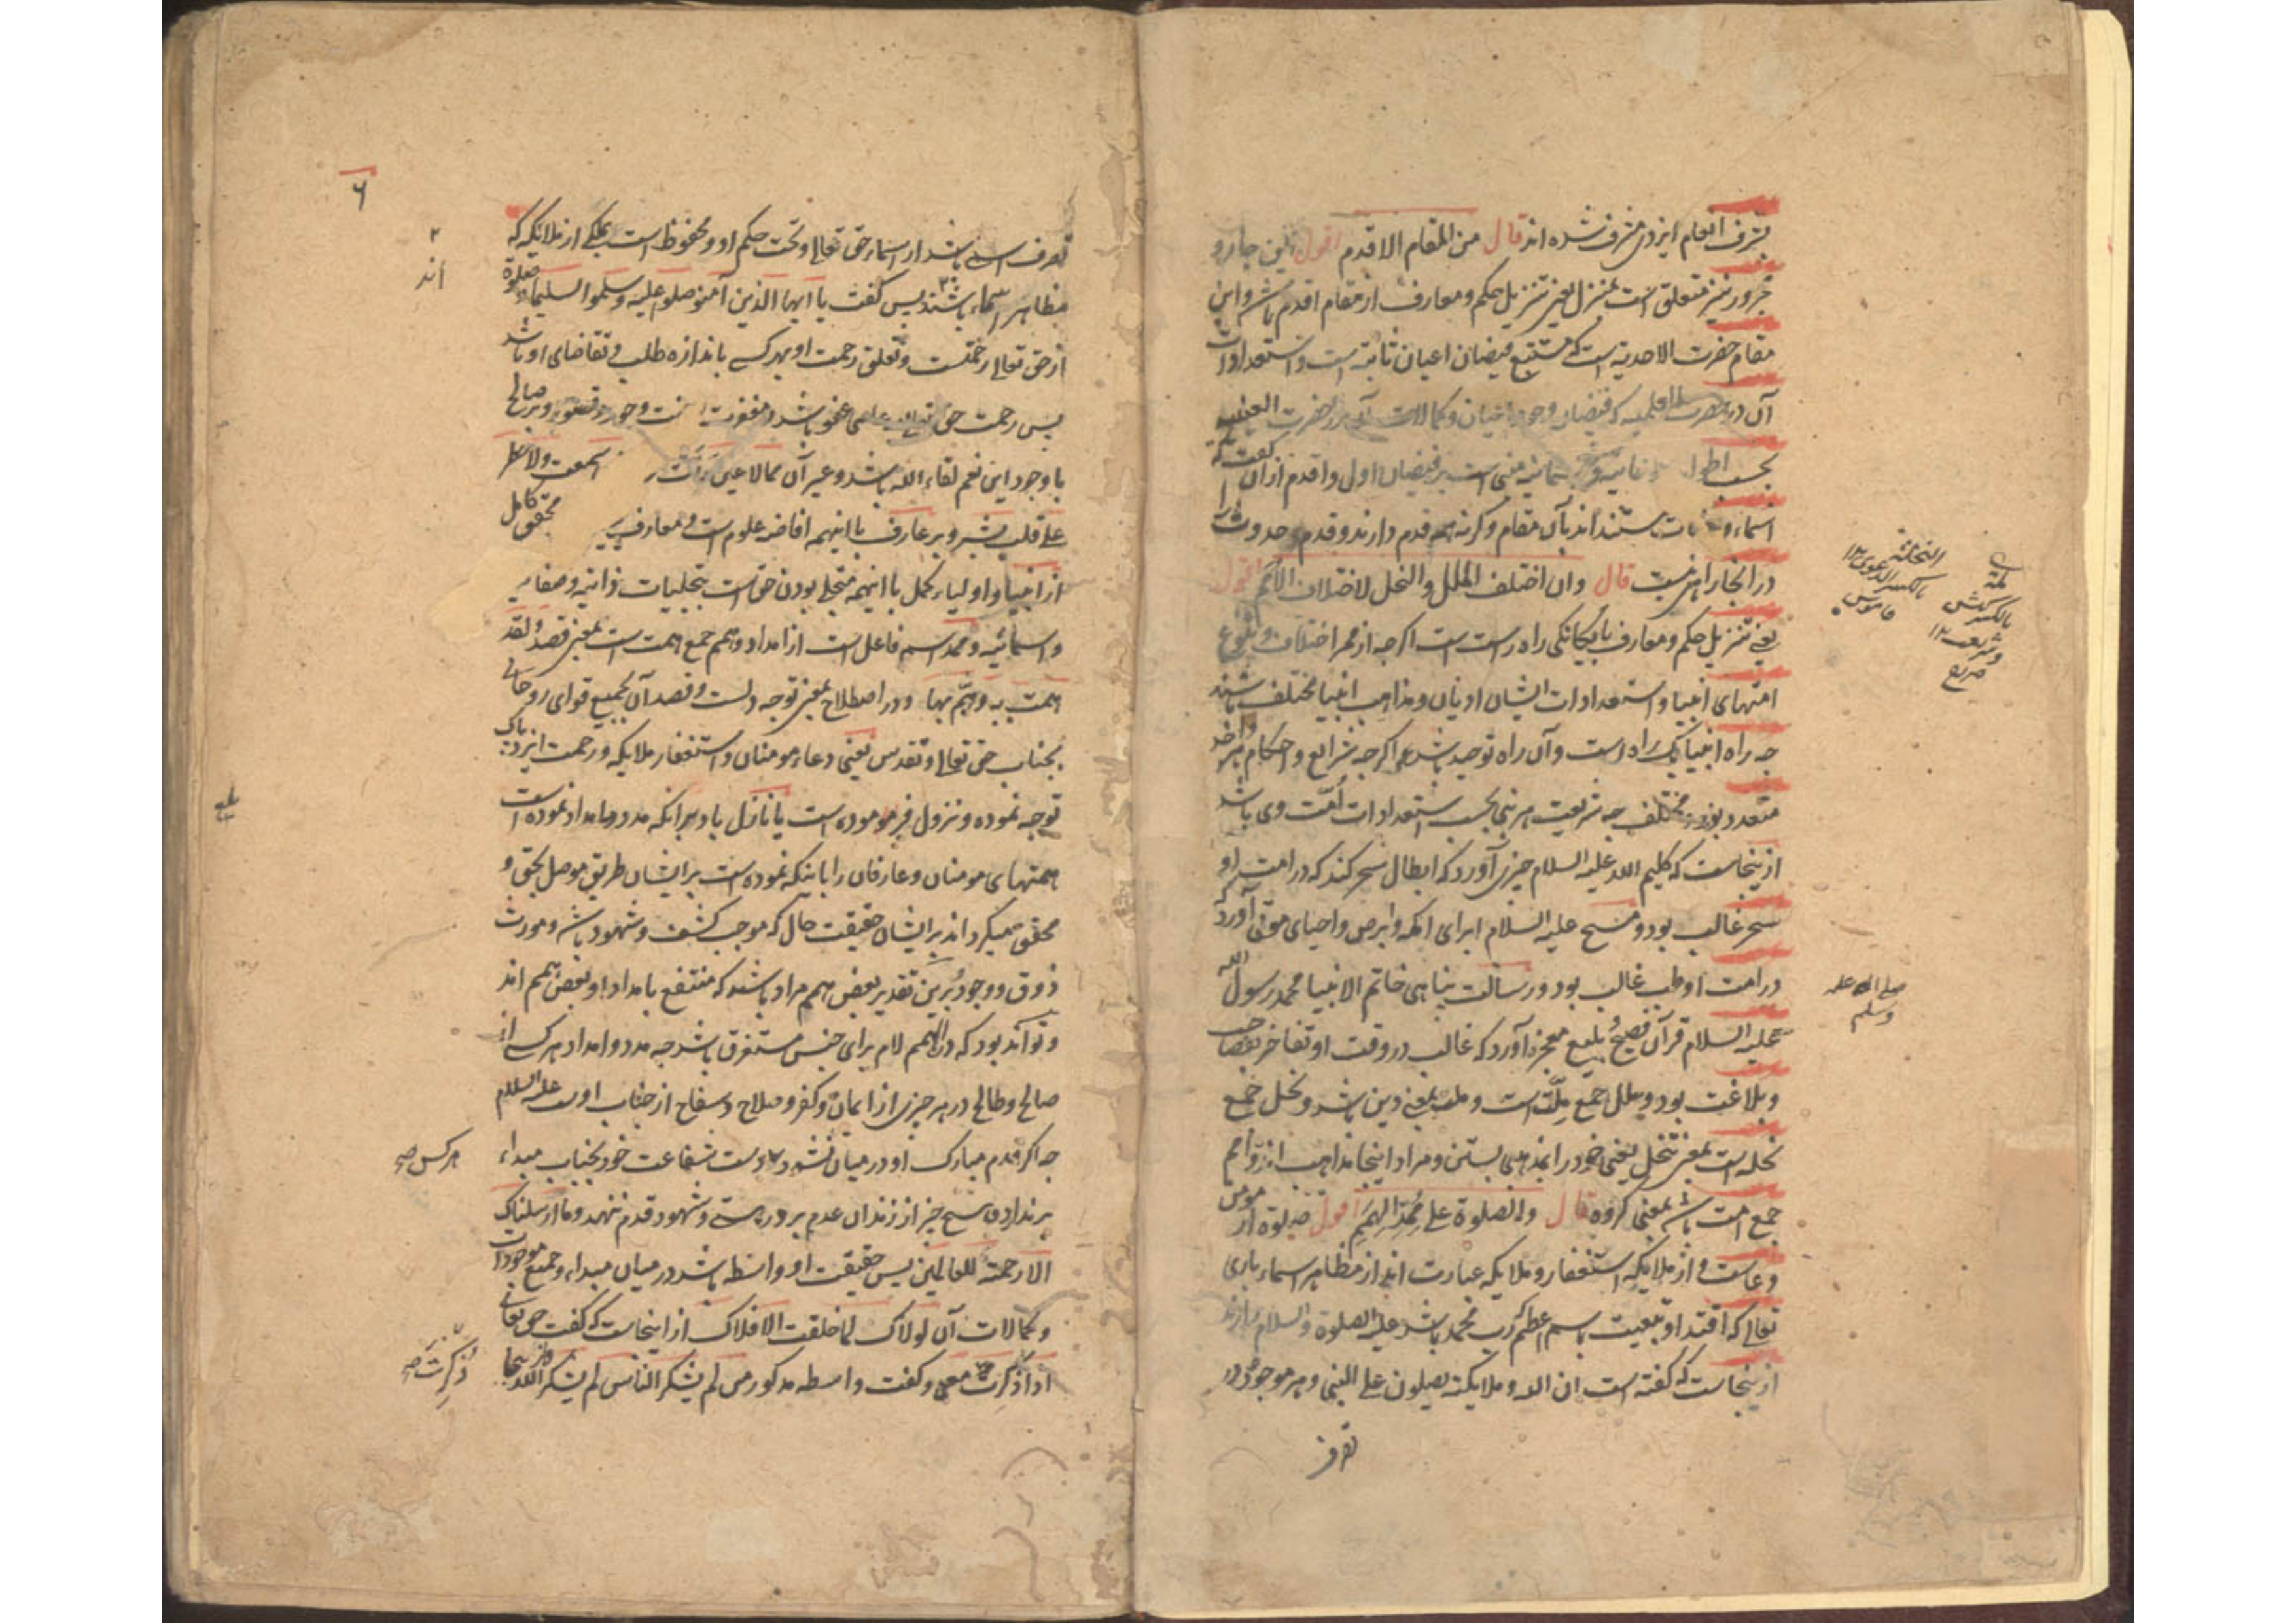 بشرف انعام ایزدی مشرف شده اند قال من المقام الاقدم اقول این جار و
مجرور نیز متعلق است بمنزل یعنی تنزیل حکم و معارف از مقام اقدم باشد و این
مقام حضرت الاحدیة است که مستتبع فیضان اعیان ثابته است و استعدادات
آن در حضرت العلمیه که فیضان وجود اعیان و کمالات آن در حضرت العینیه
بحسب اطوار مبنی است بر فیضان اول و اقدم از آن گفت که
اسماء و اند بآن مقام و گرنه همه قدم دارند و قدم و حدوث را
در انجا راهی نیست قال وان اختلف الملل والنحل لاختلاف الامم اقول
یعنی تنزیل حکم و معارف بایگانگی راه راست است اگرچه از ممر اختلاف وقوع
امتهای انبیا و استعدادات ایشان ادیان و مذاهب انبیا مختلف باشند
چه راه انبیا یک راه است و آن راه توحید باشد اگرچه شرائع و احکام هر واحد
متعدد بوند و مختلف چه شریعت هر نبی بحسب استعدادات امت وی باشد
ازینجاست که کلیم الله علیه السلام چیزی آورد که ابطال سحر کند که در امت او
سحر غالب بود و مسیح علیه السلام ابرای اکمه و ابرص و احیای موتی آورد که
در امت او طب غالب بود و رسالت پناهی خاتم الانبیا محمد رسول الله
علیه السلام قرآن فصیح و بلیغ معجزه آورد که غالب در وقت او تفاخر بفصاحت
و بلاغت بود و ملل جمع ملت است و ملت بمعنی دین باشد و نحل جمع
نحله است بمعنی تنحل یعنی خود را بمذهبی بستن و مراد اینجا مذاهب اند و امم
جمع امت باشد بمعنی گروه قال والصلوة علی ممد الهمم اقول صلوة از مومن
دعاست و از ملایکه استغفار و ملایکه عبارت اند از مظاهر اسماء باری
تعالی که اقتدا و تبعیت باسم اعظم که رب محمد باشد علیه الصلوة والسلام دارند
ازینجاست که گفته است ان الله وملایکته یصلون علی النبی و هر موجود در
تصرف
النحلة
بالکسر الدعوی ۱۲
قاموس
ملة
بالکسر کیش
و شریعت ۱۲
صراح
صلی الله علیه
وسلم
۶
تصرف اسمی باشد از اسماء حق تعالی و تحت حکم او و محفوظ است بملکی از ملایکه که
مظاهر اسماء باشند پس گفت یا ایها الذین آمنوا صلوا علیه وسلموا تسلیما و صلوة
از حق تعالی رحمتست و تعلق رحمت او بهر کسی باندازه طلب و تقاضای او باشد
پس رحمت حق تعالی بر عاصی عفو باشد و مغفرت و حور و قصور و بر صالح
با وجود این نعم لقاء الله باشد و غیر آن مما لا عین رأت اذن سمعت ولا خطر
علی قلب بشر و بر عارف با اینهمه افاضه علوم است و معارف محقق کامل
از انبیا و اولیاء کمل با اینهمه متجلی بودن حق است بتجلیات ذاتیه و صفاتیه
و اسمائیه و ممد اسم فاعل است از امداد و همم جمع همت است بمعنی قصد و لقد
همت به وهم بها و در اصطلاح بمعنی توجه دلست و قصد آن بجمیع قوای روحانی
بجناب حق تعالی و تقدس یعنی دعاء مومنان و استغفار ملایکه و رحمت ایزد پاک
توجه نموده و نزول فرموده است یا نازل باد برانکه مدد و امداد نموده است
همتهای مومنان و عارفان را بانکه نموده است بر ایشان طریق موصل بحق و
محقق میگرداند بر ایشان حقیقت حال که موجب کشف و شهود باشد و مورث
ذوق و وجود و برین تقدیر بعض همم مراد باشند که منتفع بامداد او بعض همم اند
و تواند بود که در الهمم لام برای جنس مستغرق باشد چه مدد و امداد هر کسی از
صالح و طالح در هر چیزی از ایمان و کفر و صلاح و سفاح از جناب اوست علیه السلام
چه اگر قدم مبارک او در میان نشود و دست شفاعت خود بجناب مبداء
برندارد هیچ چیز از زندان عدم بر در هستی و شهود قدم ننهد وما ارسلناک
الا رحمة للعالمین پس حقیقت او واسطه باشد در میان مبداء و جمیع موجودات
و کمالات آن لولاک لما خلقت الافلاک از اینجاست که گفت حق تعالی
اذا ذکرت معی و گفت واسطه مذکور من لم یشکر الناس لم یشکر الله
۲
اند
هر کس صح
ذکرت صح